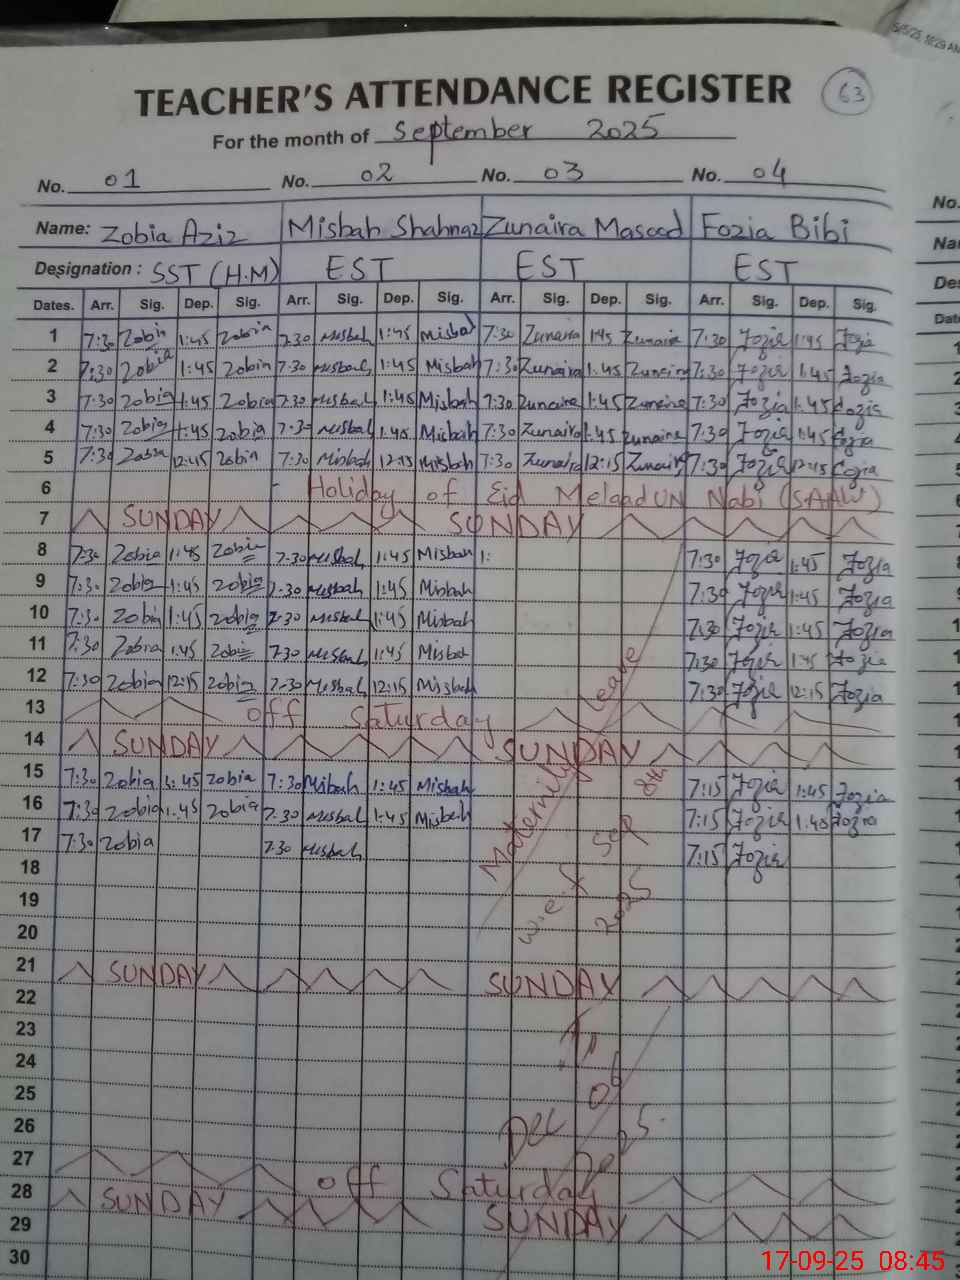 5/5/25, 10:29 AM
TEACHER'S ATTENDANCE REGISTER 63
For the month of September 2025
No. 01 No. 02 No. 03 No. 04 No.
Name: Zobia Aziz Misbah Shahnaz Zunaira Masood Fozia Bibi
Designation: SST (H.M) EST EST EST
Dates. Arr. Sig. Dep. Sig. Arr. Sig. Dep. Sig. Arr. Sig. Dep. Sig. Arr. Sig. Dep. Sig.
1 7:30 Zobia 1:45 Zobia 7:30 Misbah 1:45 Misbah 7:30 Zunaira 1:45 Zunaira 7:30 Fozia 1:45 Fozia
2 7:30 Zobia 1:45 Zobia 7:30 Misbah 1:45 Misbah 7:30 Zunaira 1:45 Zunaira 7:30 Fozia 1:45 Fozia
3 7:30 Zobia 1:45 Zobia 7:30 Misbah 1:45 Misbah 7:30 Zunaira 1:45 Zunaira 7:30 Fozia 1:45 Fozia
4 7:30 Zobia 1:45 Zobia 7:30 Misbah 1:45 Misbah 7:30 Zunaira 1:45 Zunaira 7:30 Fozia 1:45 Fozia
5 7:30 Zobia 12:15 Zobia 7:30 Misbah 12:15 Misbah 7:30 Zunaira 12:15 Zunaira 7:30 Fozia 12:15 Fozia
6 Holiday of Eid MelaadUN Nabi (SAAW)
7 SUNDAY SUNDAY
8 7:30 Zobia 1:45 Zobia 7:30 Misbah 1:45 Misbah 1: 7:30 Fozia 1:45 Fozia
9 7:30 Zobia 1:45 Zobia 7:30 Misbah 1:45 Misbah 7:30 Fozia 1:45 Fozia
10 7:30 Zobia 1:45 Zobia 7:30 Misbah 1:45 Misbah 7:30 Fozia 1:45 Fozia
11 7:30 Zobia 1:45 Zobia 7:30 Misbah 1:45 Misbah 7:30 Fozia 1:45 Fozia
12 7:30 Zobia 12:15 Zobia 7:30 Misbah 12:15 Misbah 7:30 Fozia 12:15 Fozia
13 off Saturday
14 SUNDAY SUNDAY
Maternity Leave
w.e.f Sep 8th
2025
15 7:30 Zobia 1:45 Zobia 7:30 Misbah 1:45 Misbah 7:15 Fozia 1:45 Fozia
16 7:30 Zobia 1:45 Zobia 7:30 Misbah 1:45 Misbah 7:15 Fozia 1:48 Fozia
17 7:30 Zobia 7:30 Misbah 7:15 Fozia
18
19
20
21 SUNDAY SUNDAY
22
23
24
25
26
To
Dec 06
2025.
27
28 off Saturday
SUNDAY SUNDAY
29
30
17-09-25 08:45